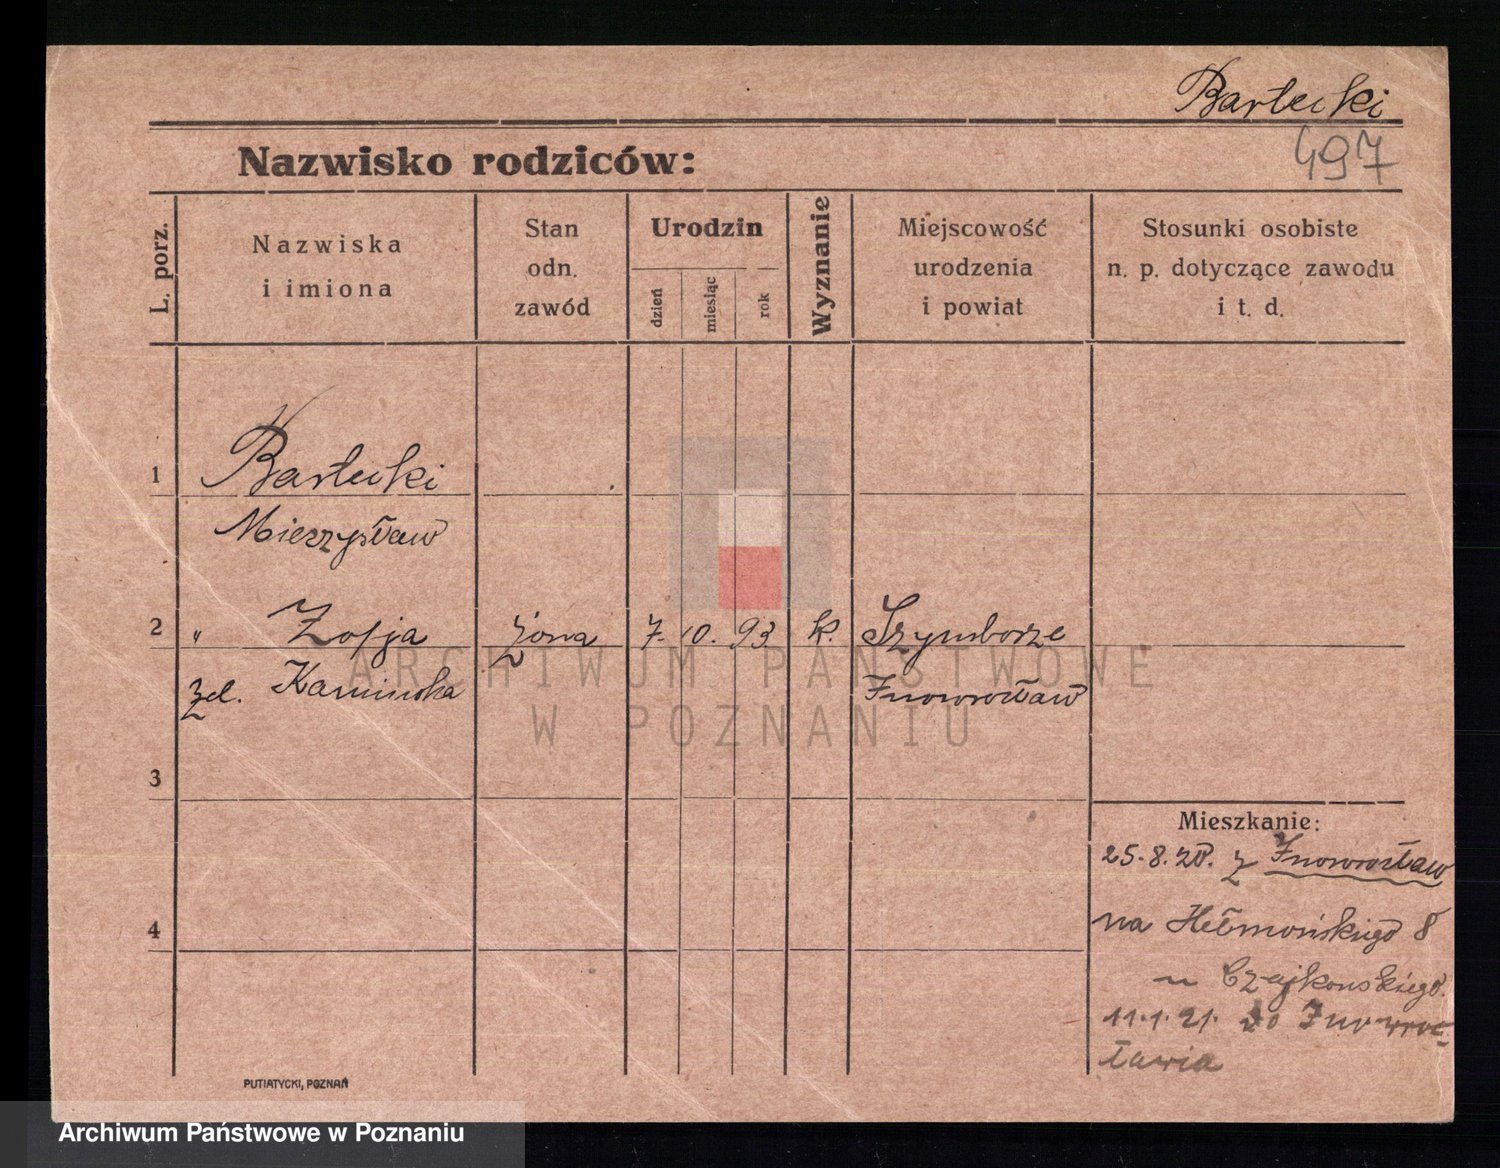 Bartecki
497
Nazwisko rodziców:
L. porz.
Nazwiska
i imiona
Stan
odn.
zawód
Urodzin
dzień
miesiąc
rok
Wyznanie
Miejscowość
urodzenia
i powiat
Stosunki osobiste
n. p. dotyczące zawodu
i t. d.
1 Bartecki
Mieczysław
2 " Zofja żona 7. 10. 93 k. Szymborze
żel. Kamińska Inowrocław
3
4
Mieszkanie:
25.8.20. z Inowrocław
na Hełmońskiego 8
u Czajkowskiego.
11.1.21. do Inowroc=
ławia
PUTIATYCKI, POZNAŃ
ARCHIWUM PAŃSTWOWE
W POZNANIU
Archiwum Państwowe w Poznaniu